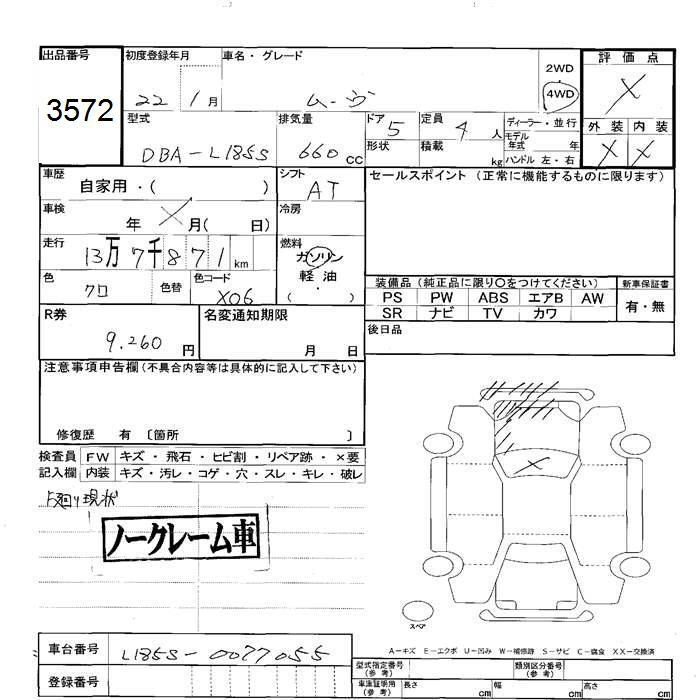 出品番号
3572
初度登録年月
22 1月
車名・グレード
ムーヴ
2WD
4WD
評価点
X
外装 内装
X X
型式
DBA-L185S
排気量
660 CC
ドア 5
形状
定員 4 人
積載 kg
ディーラー・並行
モデル
年式 年
ハンドル 左・右
車歴
自家用・( )
シフト
AT
車検
年 X 月( 日)
冷房
走行
13万7千871km
燃料
ガソリン
・
軽油
( )
色
クロ
色替
色コード
X06
R券
9.260 円
名変通知期限
月 日
セールスポイント (正常に機能するものに限ります)
装備品 (純正品に限り○をつけてください)
PS PW ABS エアB AW
SR ナビ TV カワ
新車保証書
有・無
後日品
注意事項申告欄(不具合内容等は具体的に記入して下さい)
修復歴 有 〔箇所 〕
検査員 FW キズ・飛石・ヒビ割・リペア跡・×要
記入欄 内装 キズ・汚レ・コゲ・穴・スレ・キレ・破レ
下廻り現状
ノークレーム車
X
スペア
A-キズ E-エクボ U-凹み W-補修跡 S-サビ C-腐食 XX-交換済
車台番号
L185S-0077055
登録番号
型式指定番号
(参考)
類別区分番号
(参考)
車庫証明用
(参考)
長さ cm 幅 cm 高さ cm